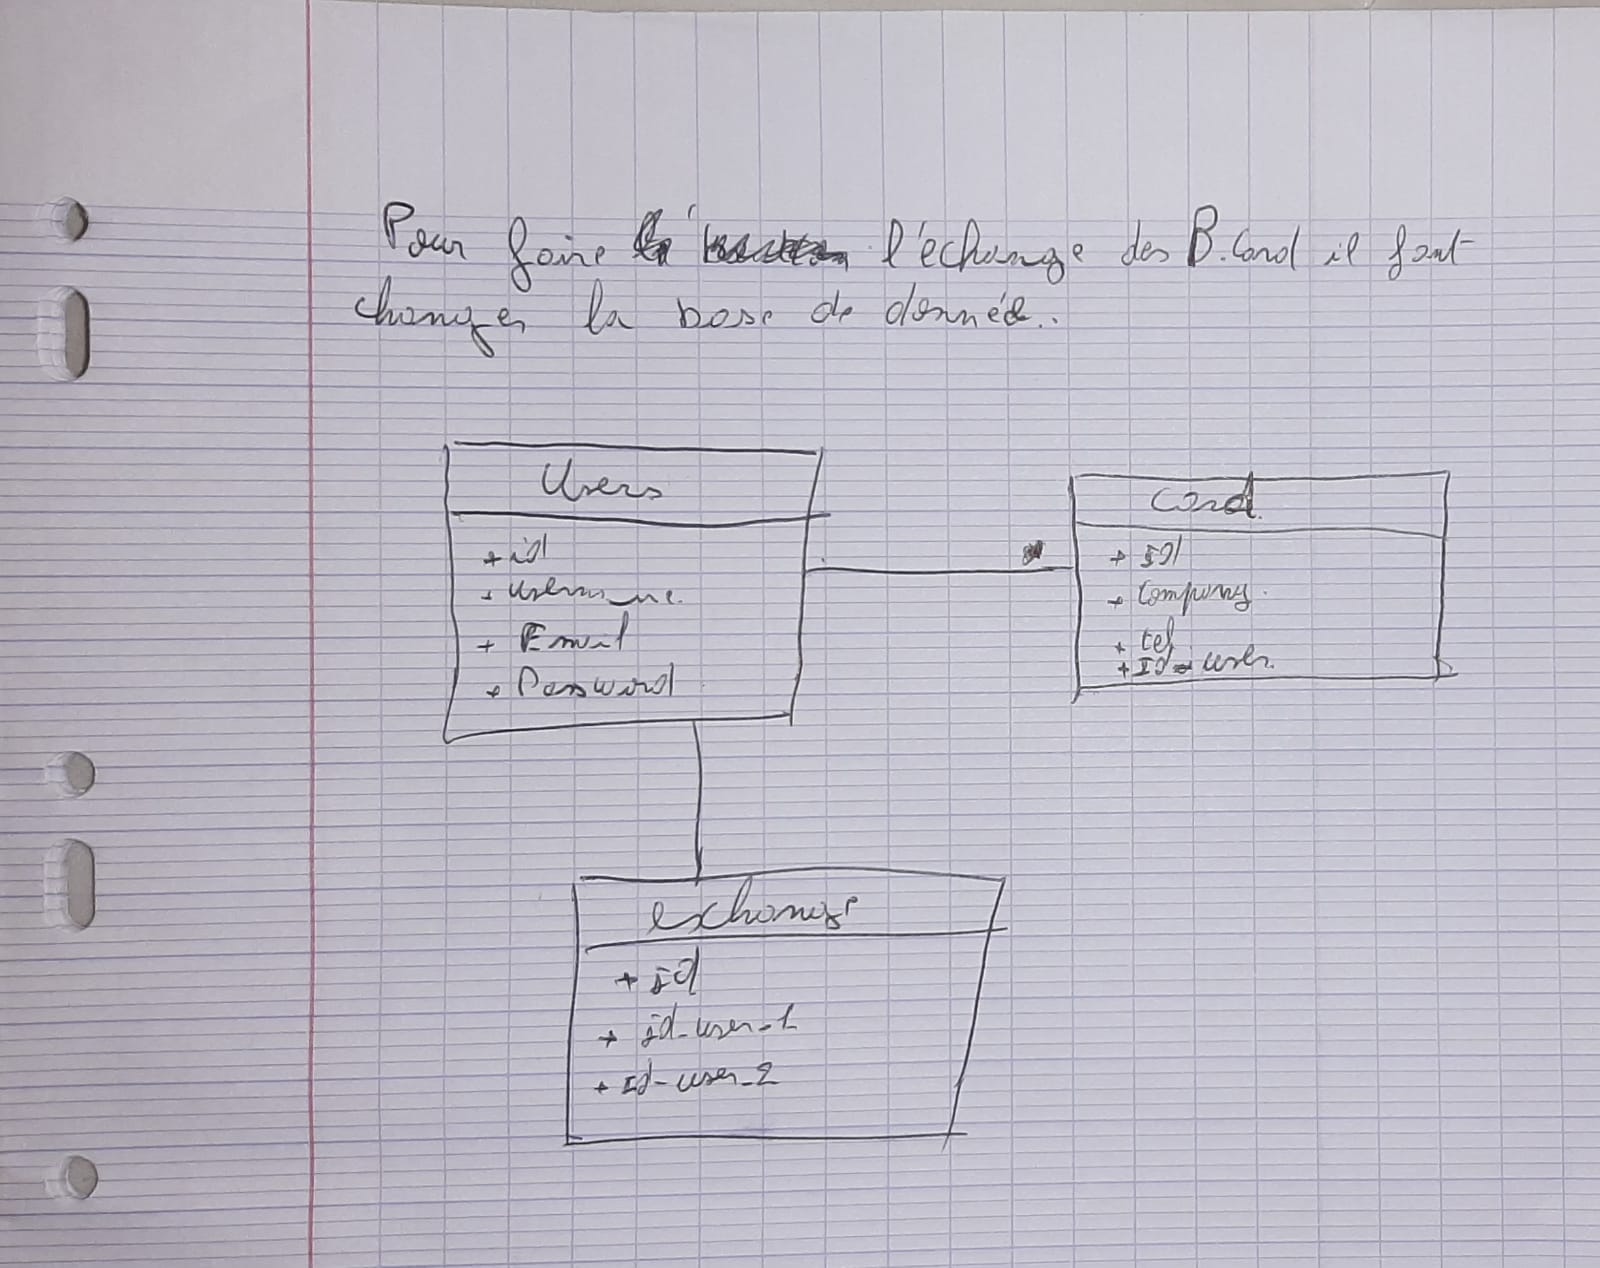 Pour faire l'échange des B.Card il faut
changer la base de donnée..
Users
+ id
+ username.
+ Email
+ Password
Card
+ Id
+ Company.
+ tel
+ Id_user.
exchange
+ id
+ id_user_1
+ Id_user_2